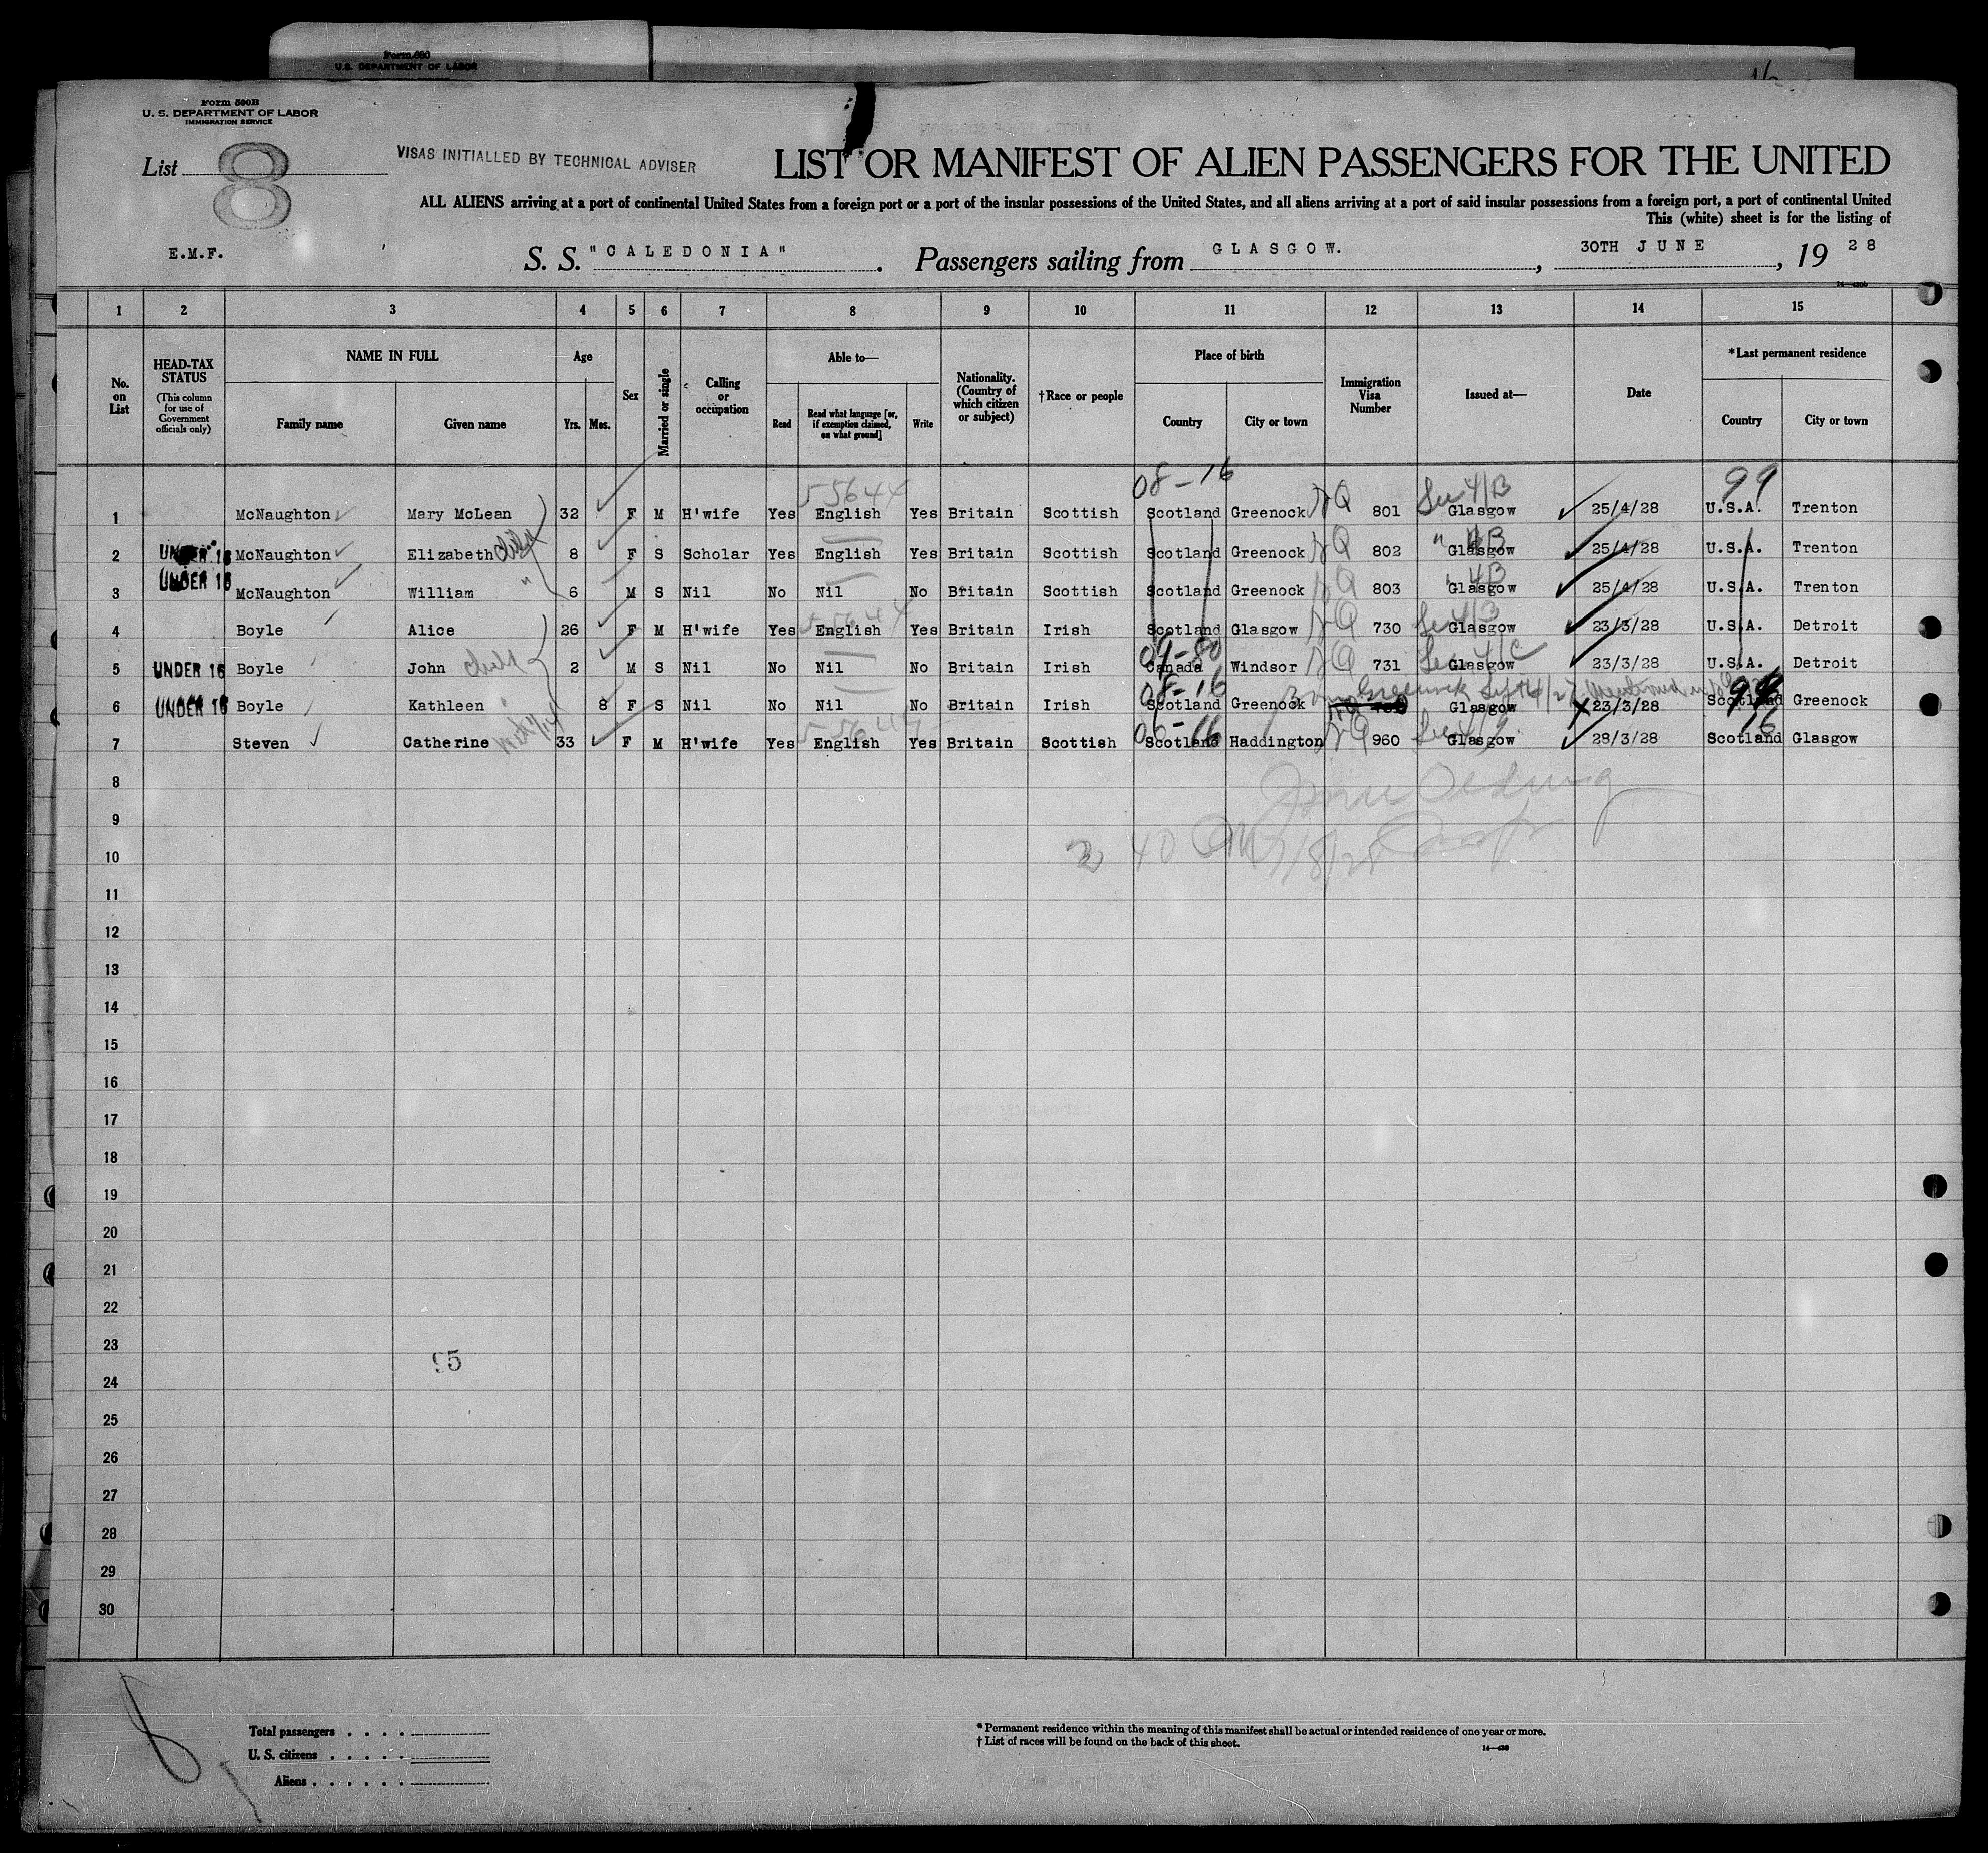 Form 690
U.S. DEPARTMENT OF LABOR
Form 500B
U. S. DEPARTMENT OF LABOR
IMMIGRATION SERVICE
List 8
VISAS INITIALLED BY TECHNICAL ADVISER
LIST OR MANIFEST OF ALIEN PASSENGERS FOR THE UNITED
ALL ALIENS arriving at a port of continental United States from a foreign port or a port of the insular possessions of the United States, and all aliens arriving at a port of said insular possessions from a foreign port, a port of continental United
This (white) sheet is for the listing of
E.M.F.
S. S. "CALEDONIA". Passengers sailing from GLASGOW., 30TH JUNE, 19 28
1 2 3 4 5 6 7 8 9 10 11 12 13 14 15
No. on List
HEAD-TAX STATUS
(This column for use of Government officials only)
NAME IN FULL
Family name Given name
Age
Yrs. Mos.
Sex
Married or single
Calling or occupation
Able to—
Read Read what language [or, if exemption claimed, on what ground] Write
Nationality. (Country of which citizen or subject)
†Race or people
Place of birth
Country City or town
Immigration Visa Number
Issued at—
Date
*Last permanent residence
Country City or town
08-16 99
55644
1 McNaughton Mary McLean 32 F M H'wife Yes English Yes Britain Scottish Scotland Greenock NQ 801 Glasgow 25/4/28 U.S.A. Trenton
2 UNDER 16 McNaughton Elizabeth child 8 F S Scholar Yes English Yes Britain Scottish Scotland Greenock NQ 802 " 4B Glasgow 25/4/28 U.S.A. Trenton
3 UNDER 16 McNaughton William " 6 M S Nil No Nil No Britain Scottish Scotland Greenock NQ 803 " 4B Glasgow 25/4/28 U.S.A. Trenton
4 Boyle Alice 26 F M H'wife Yes English Yes Britain Irish Scotland Glasgow NQ 730 Glasgow 23/3/28 U.S.A. Detroit
5 UNDER 16 Boyle John child 2 M S Nil No Nil No Britain Irish Canada Windsor NQ 731 Glasgow 23/3/28 U.S.A. Detroit
6 UNDER 16 Boyle Kathleen " 8 F S Nil No Nil No Britain Irish Scotland Greenock Glasgow 23/3/28 Scotland Greenock
7 Steven Catherine 33 F M H'wife Yes English Yes Britain Scottish Scotland Haddington NQ 960 Glasgow 28/3/28 Scotland Glasgow
8
9
10
11
12
13
14
15
16
17
18
19
20
21
22
23
95
24
25
26
27
28
29
30
Total passengers
U. S. citizens
Aliens
* Permanent residence within the meaning of this manifest shall be actual or intended residence of one year or more.
† List of races will be found on the back of this sheet.
14—430